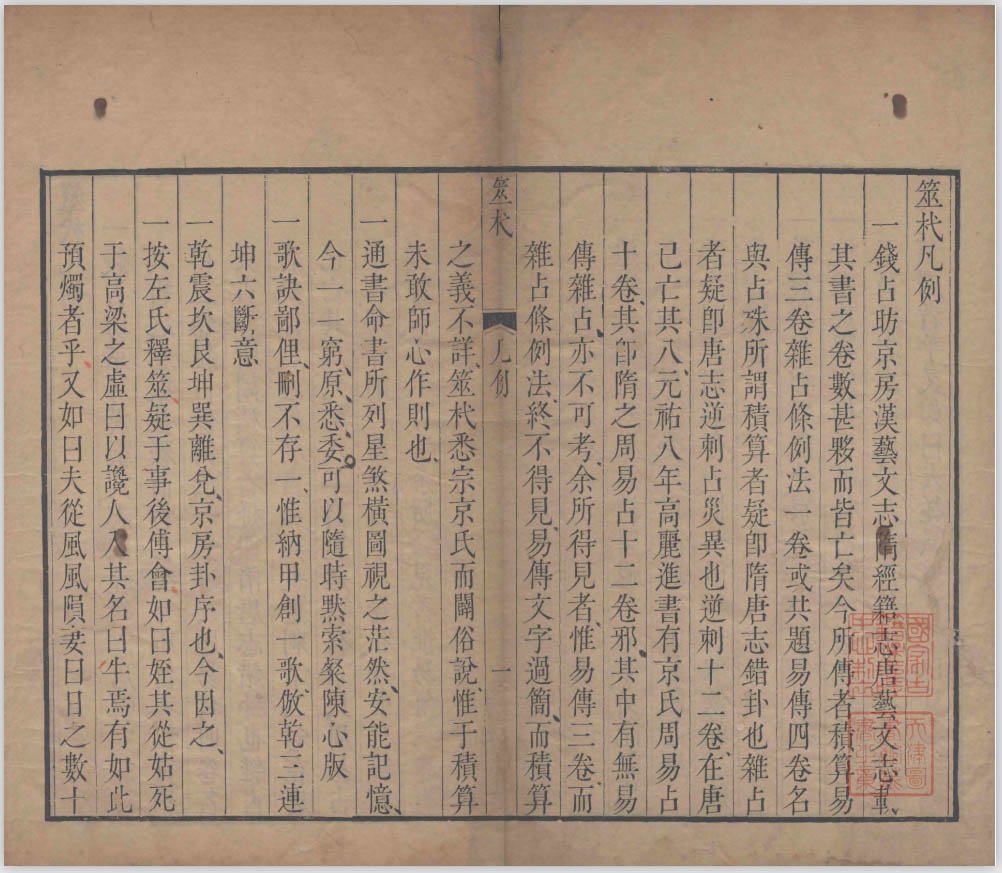 筮杙凡例
一錢占昉京房漢藝文志隋經籍志唐藝文志載
其書之卷數甚夥而皆亡矣今所傳者積算易
傳三卷雜占條例法一卷或共題易傳四卷名
與占殊所謂積算者疑卽隋唐志錯卦也雜占
者疑卽唐志逆刺占災異也逆刺十二卷在唐
已亡其八元祐八年高麗進書有京氏周易占
十卷其卽隋之周易占十二卷邪其中有無易
傳雜占亦不可考余所得見者惟易傳三卷而
雜占條例法終不得見易傳文字過簡而積算
筮杙
凡例
一
之義不詳筮杙悉宗京氏而闢俗說惟于積算
未敢師心作則也
一通書命書所列星煞橫圖視之茫然安能記憶
今一一窮原悉委可以隨時默索粲陳心版
一歌訣鄙俚刪不存一惟納甲創一歌倣乾三連
坤六斷意
一乾震坎艮坤巽離兌京房卦序也今因之
一按左氏釋筮疑于事後傅會如曰姪其從姑死
于高梁之虛曰以讒人入其名曰牛焉有如此
預燭者乎又如曰夫從風風隕妻曰日之數十